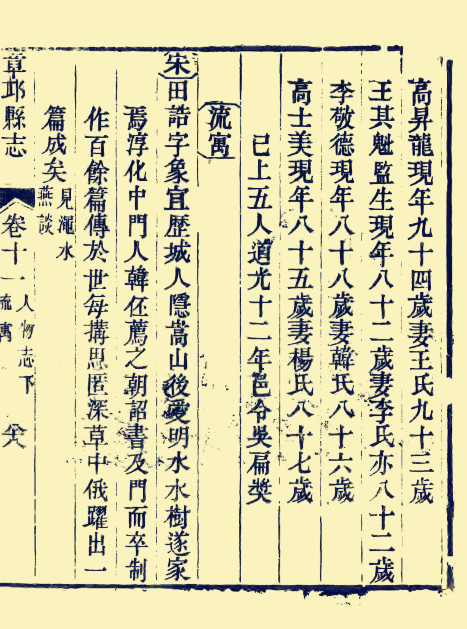 高昇龍現年九十四歲妻王氏九十三歲
王其魁監生現年八十二歲妻李氏亦八十二歲
李敬德現年八十八歲妻韓氏八十六歲
高士美現年八十五歲妻楊氏八十七歲
已上五人道光十二年邑令吳扁獎
流寓
宋田誥字象宜歷城人隱嵩山後愛明水水樹遂家
焉淳化中門人韓伾薦之朝詔書及門而卒制
作百餘篇傳於世每搆思匿深草中俄躍出一
篇成矣見澠水燕談
章邱縣志 卷十一 人物志下 流寓